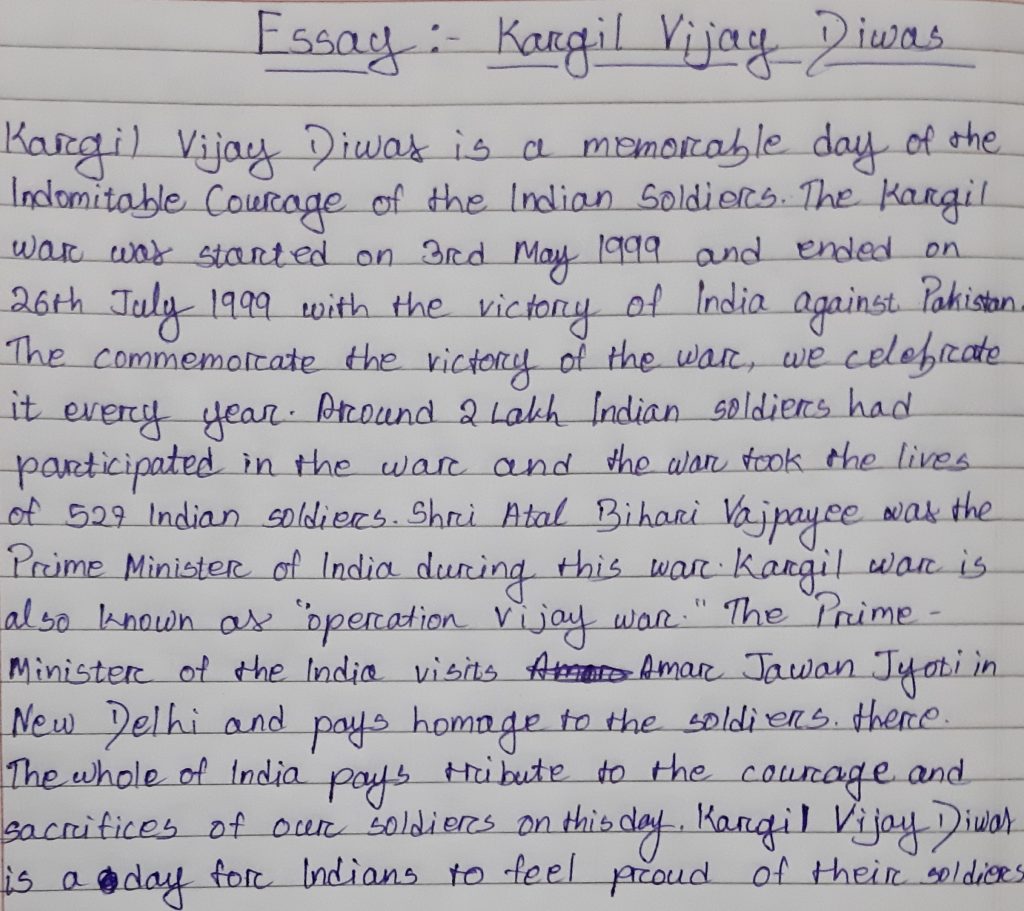 Essay :- Kargil Vijay Diwas
Kargil Vijay Diwas is a memorable day of the
Indomitable Courage of the Indian Soldiers. The Kargil
war was started on 3rd May 1999 and ended on
26th July 1999 with the victory of India against Pakistan.
The commemorate the victory of the war, we celebrate
it every year. Around 2 Lakh Indian soldiers had
participated in the war and the war took the lives
of 527 Indian soldiers. Shri Atal Bihari Vajpayee was the
Prime Minister of India during this war. Kargil war is
also known as "operation Vijay war." The Prime -
Minister of the India visits Amar Jawan Jyoti in
New Delhi and pays homage to the soldiers. there.
The whole of India pays tribute to the courage and
sacrifices of our soldiers on this day. Kargil Vijay Diwas
is a day for Indians to feel proud of their soldiers